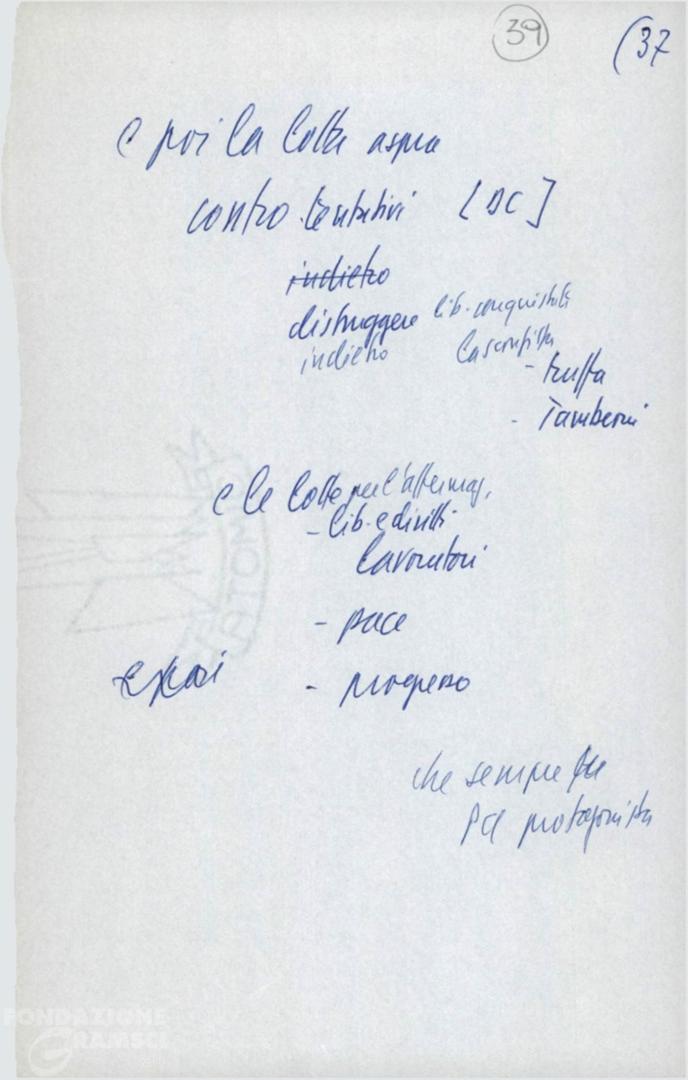 39 (37
e poi la lotta aspra
contro tentativi [DC]
indietro
distruggere lib. conquistate
indietro la sconfitta
- truffa
- Tambroni
e le lotte per l'affermaz.
- lib. e diritti
lavoratori
- pace
e poi - progresso
che sempre fu
Pci protagonista
FONDAZIONE
GRAMSCI